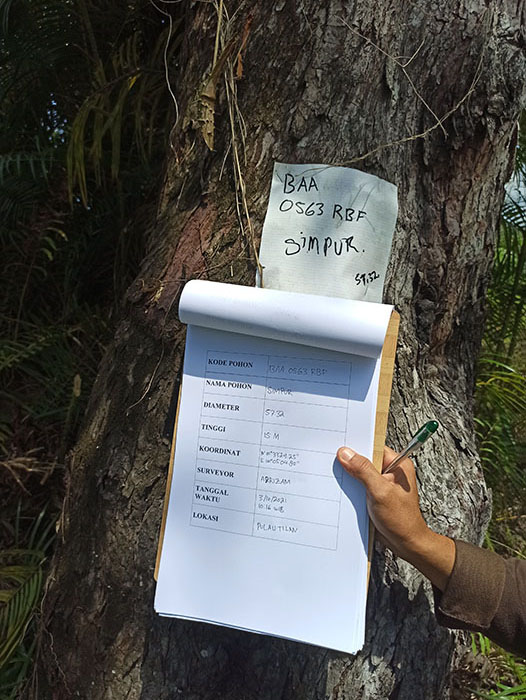 BAA
0563 RBF
SIMPUR.
57,32
KODE POHON BAA 0563 RBF
NAMA POHON SIMPUR
DIAMETER 57.32
TINGGI 15 M
KOORDINAT
SURVEYOR
TANGGAL
WAKTU
LOKASI PULAU TILAN